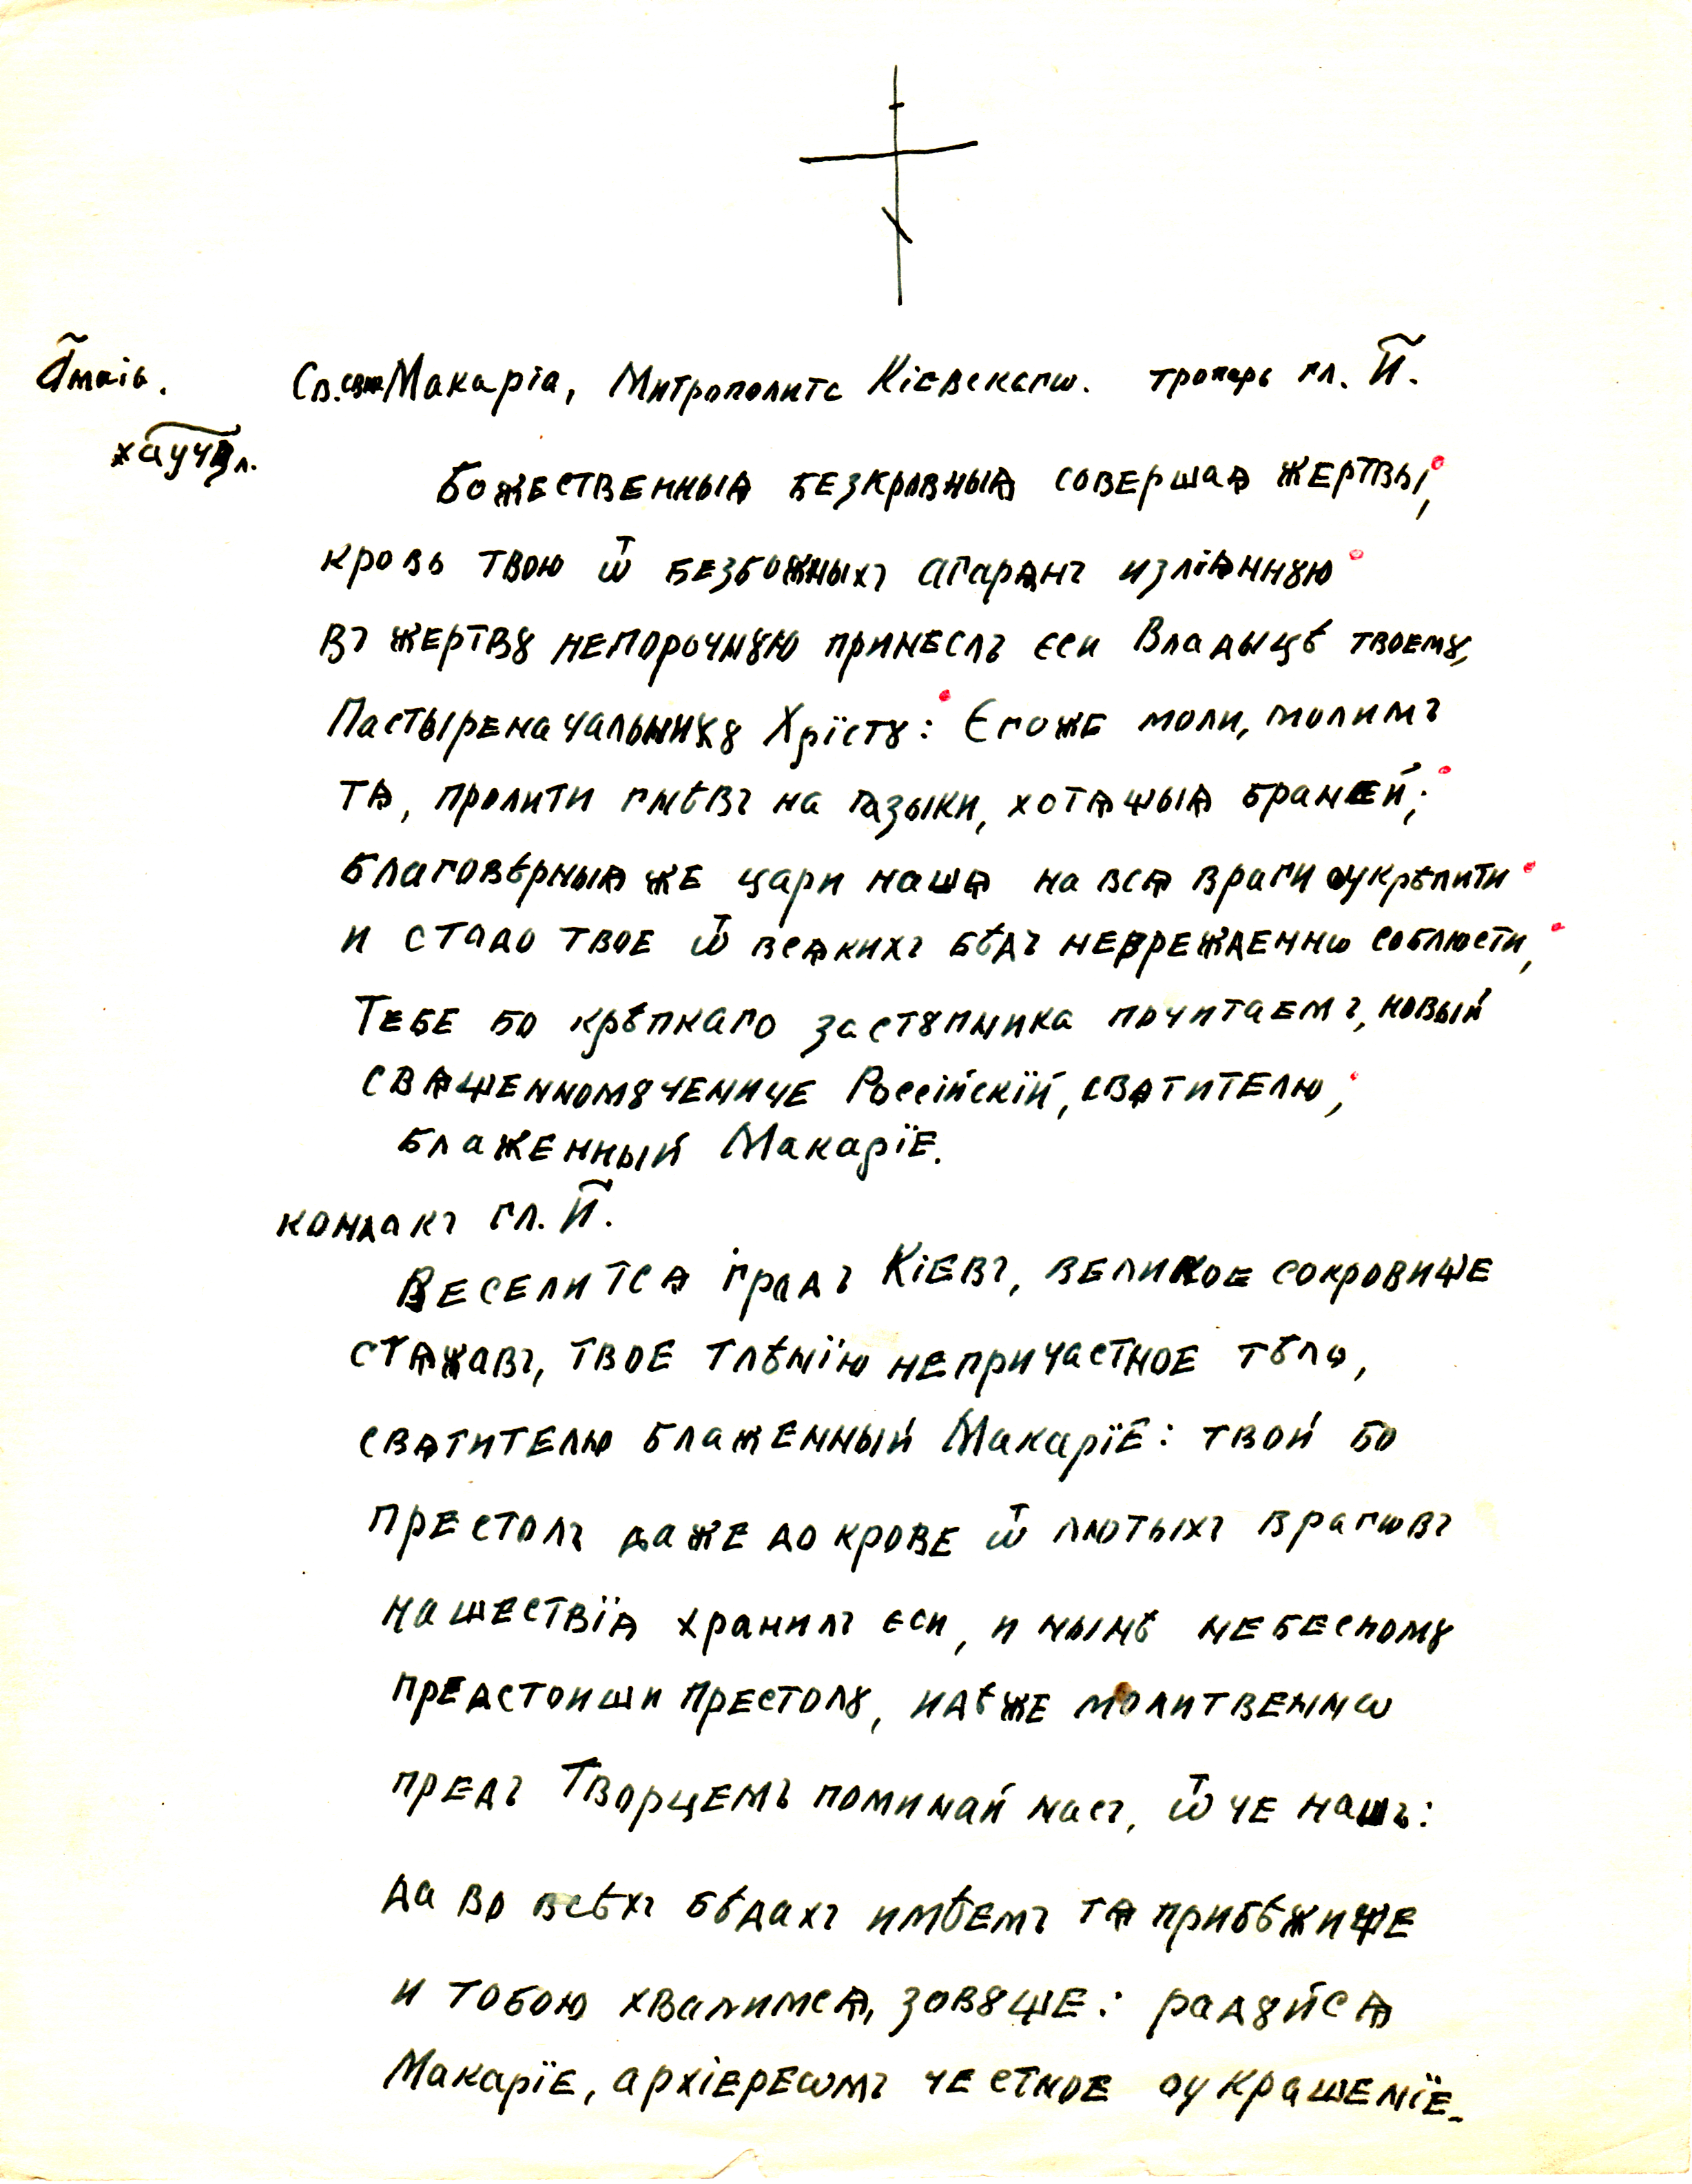 а҃ маіа. Св. сщм Макаріа, Митрополита Кіевскагѡ. тропарь гл. и҃.
ха҃учз л.
Божественныѧ безкровныѧ совершаѧ жертвы,
кровь твою ѿ безбожныхъ агарѧнъ излїѧннꙋю
въ жертвꙋ непорочнꙋю принеслъ єси Владыцѣ твоемꙋ,
Пастыреначальникꙋ Хрїстꙋ: Єгоже моли, молимъ
тѧ, пролити гнѣвъ на ꙗзыки, хотѧщыѧ браней;
благовѣрныѧ же цари нашѧ на всѧ враги оукрѣпити
и стадо твое ѿ всѧкихъ бѣдъ неврежденнѡ соблюсти,
Тебе бо крѣпкаго застꙋпника почитаемъ, новый
свѧщенномꙋчениче Россійскїй, свѧтителю,
блаженный Макарїе.
кондакъ гл. и҃.
Веселитсѧ градъ Кіевъ, великое сокровище
стѧжавъ, твое тлѣнїю непричастное тѣло,
свѧтителю блаженный Макарїе: твой бо
престолъ даже до крове ѿ лютыхъ врагѡвъ
нашествїѧ хранилъ єси, и нынѣ небесномꙋ
предстоиши престолꙋ, идѣже молитвеннѡ
предъ Творцемъ поминай насъ, ѿче нашъ:
да во всѣхъ бѣдахъ имѣемъ тѧ прибѣжище
и тобою хвалимсѧ, зовꙋще: радꙋйсѧ
Макарїе, архіереѡмъ честное оукрашенїе.